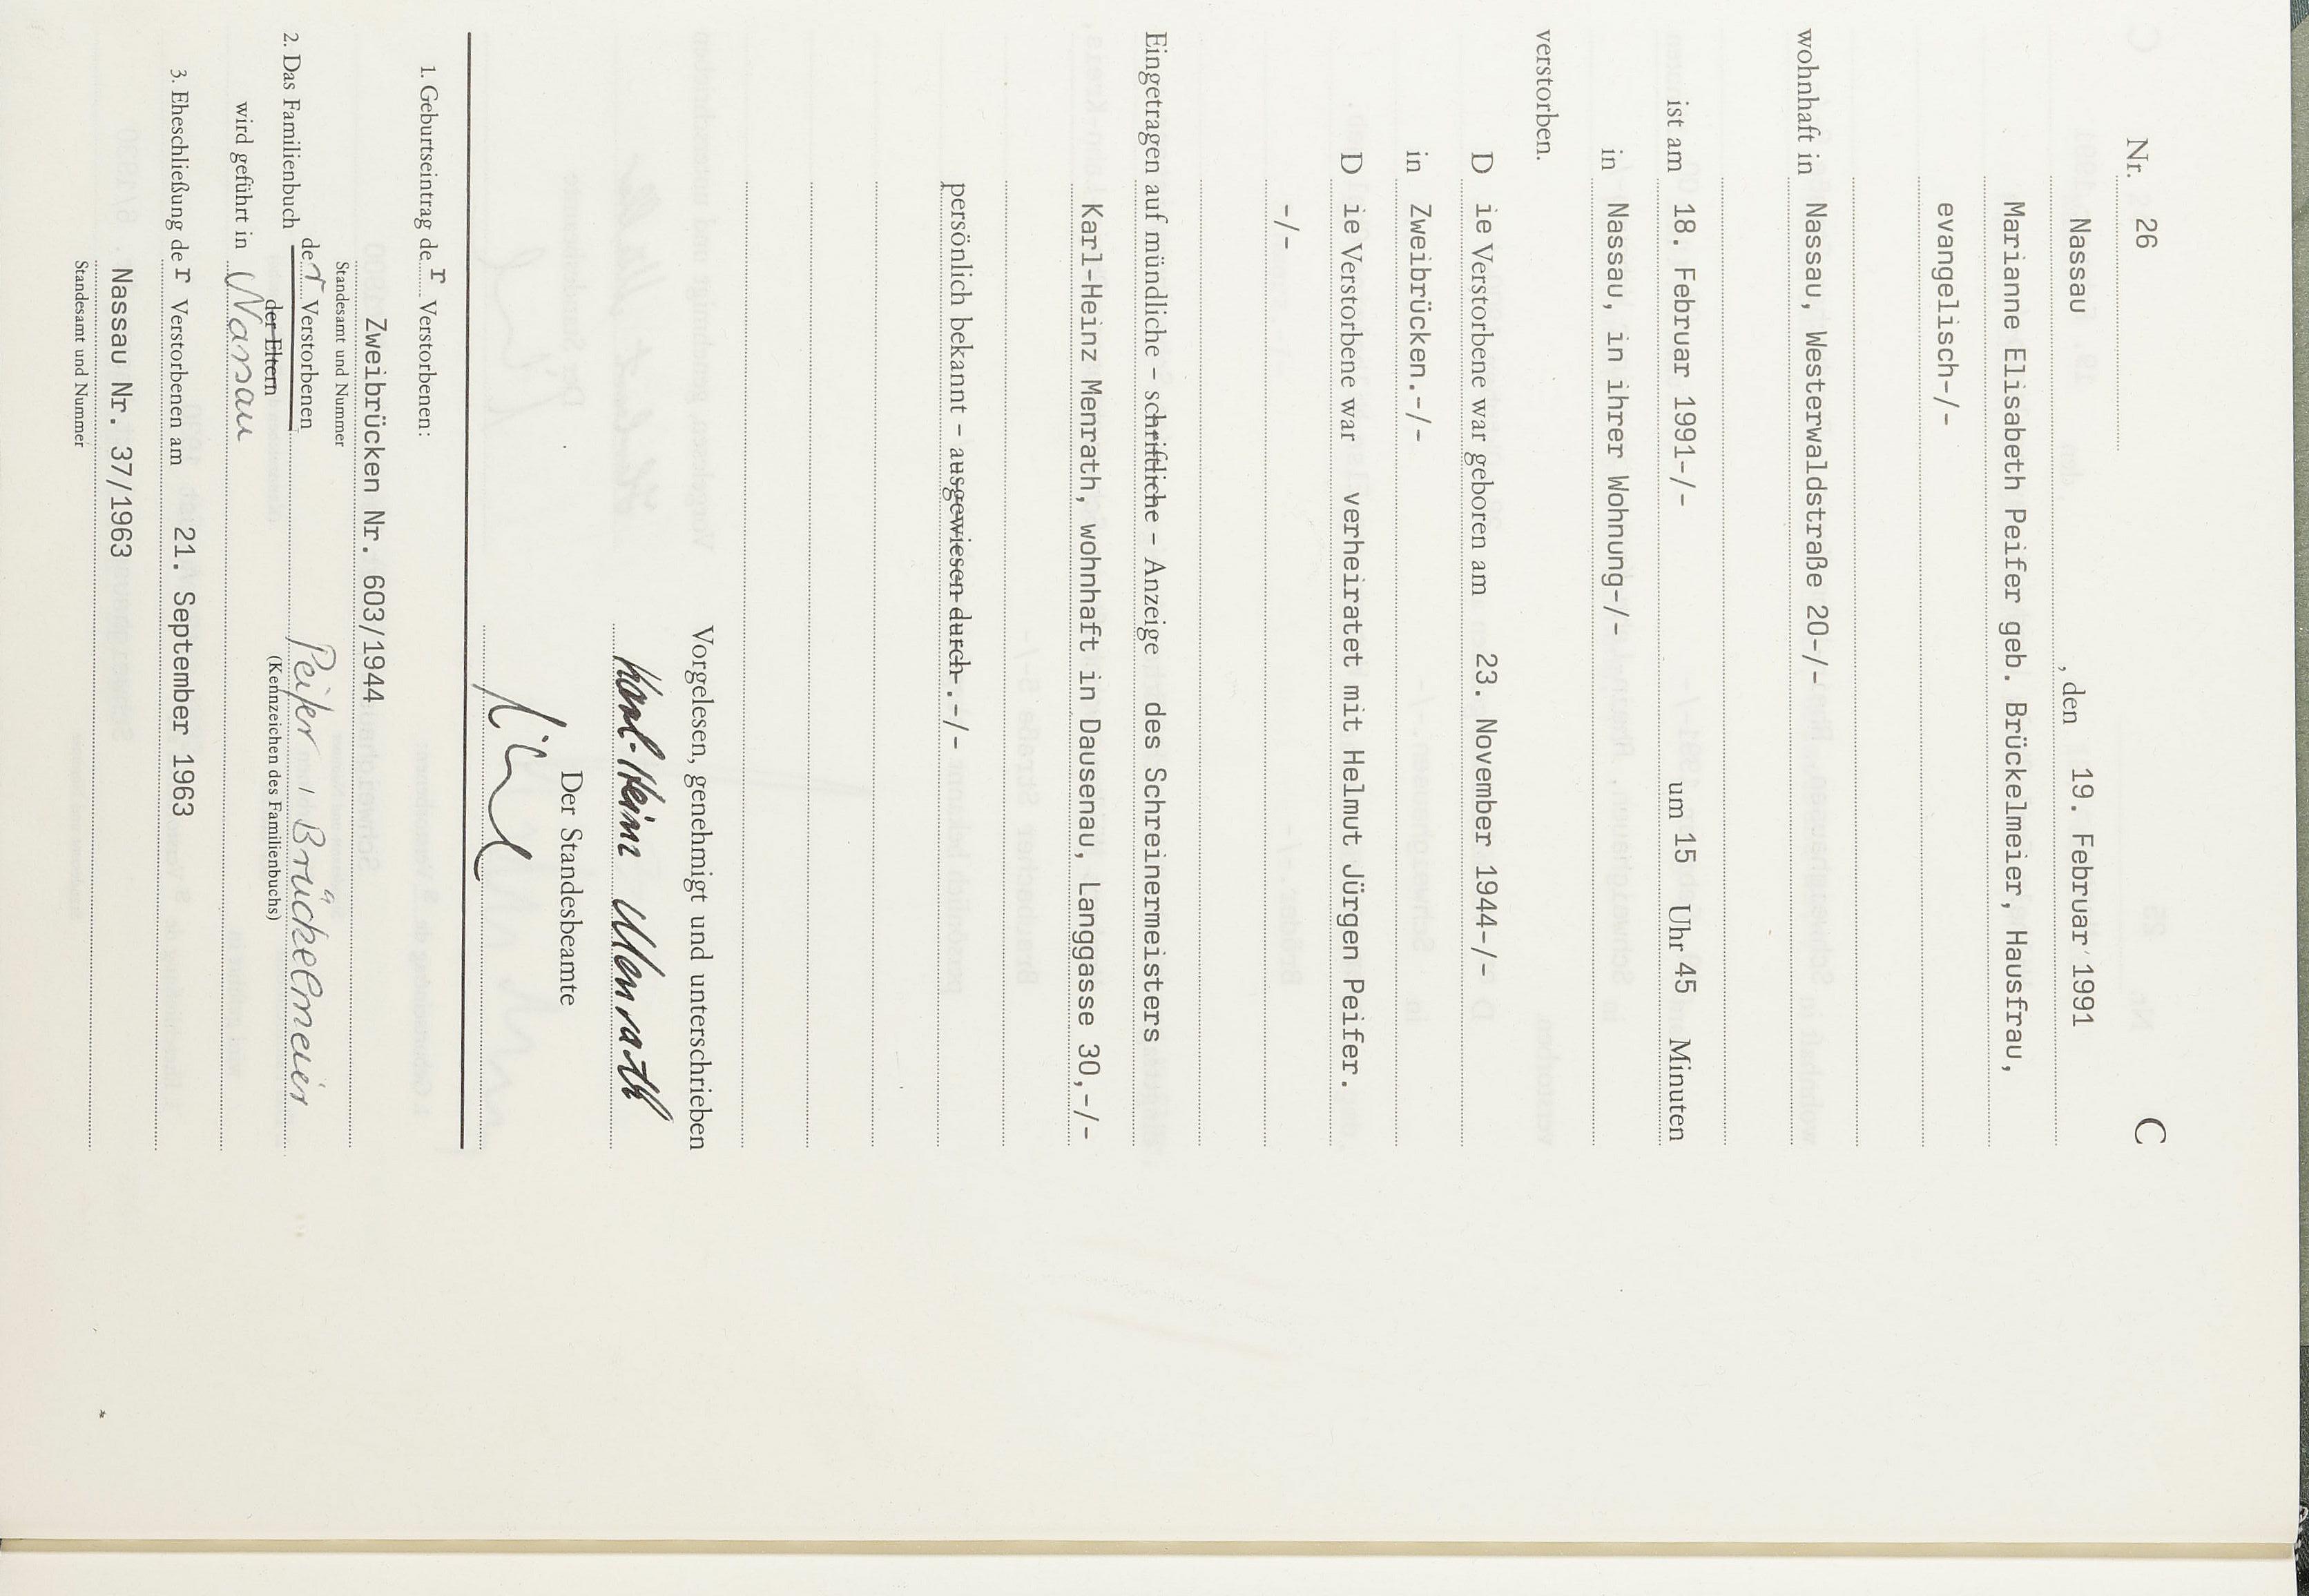 Nr. 26 C
Nassau, den 19. Februar 1991
Marianne Elisabeth Peifer geb. Brückelmeier, Hausfrau,
evangelisch-/-
wohnhaft in Nassau, Westerwaldstraße 20-/-
ist am 18. Februar 1991-/- um 15 Uhr 45 Minuten
in Nassau, in ihrer Wohnung-/-
verstorben.
D ie Verstorbene war geboren am 23. November 1944-/-
in Zweibrücken.-/-
D ie Verstorbene war verheiratet mit Helmut Jürgen Peifer.
-/-
Eingetragen auf mündliche - schriftliche - Anzeige des Schreinermeisters
Karl-Heinz Menrath, wohnhaft in Dausenau, Langgasse 30,-/-
persönlich bekannt - ausgewiesen durch-.-/-
Vorgelesen, genehmigt und unterschrieben
Karl-Heinz Menrath
Der Standesbeamte
1. Geburtseintrag de r Verstorbenen:
Zweibrücken Nr. 603/1944
Standesamt und Nummer
2. Das Familienbuch der Verstorbenen Peifer / Brückelmeier
der Eltern (Kennzeichen des Familienbuchs)
wird geführt in Nassau
3. Eheschließung de r Verstorbenen am 21. September 1963
Nassau Nr. 37/1963
Standesamt und Nummer